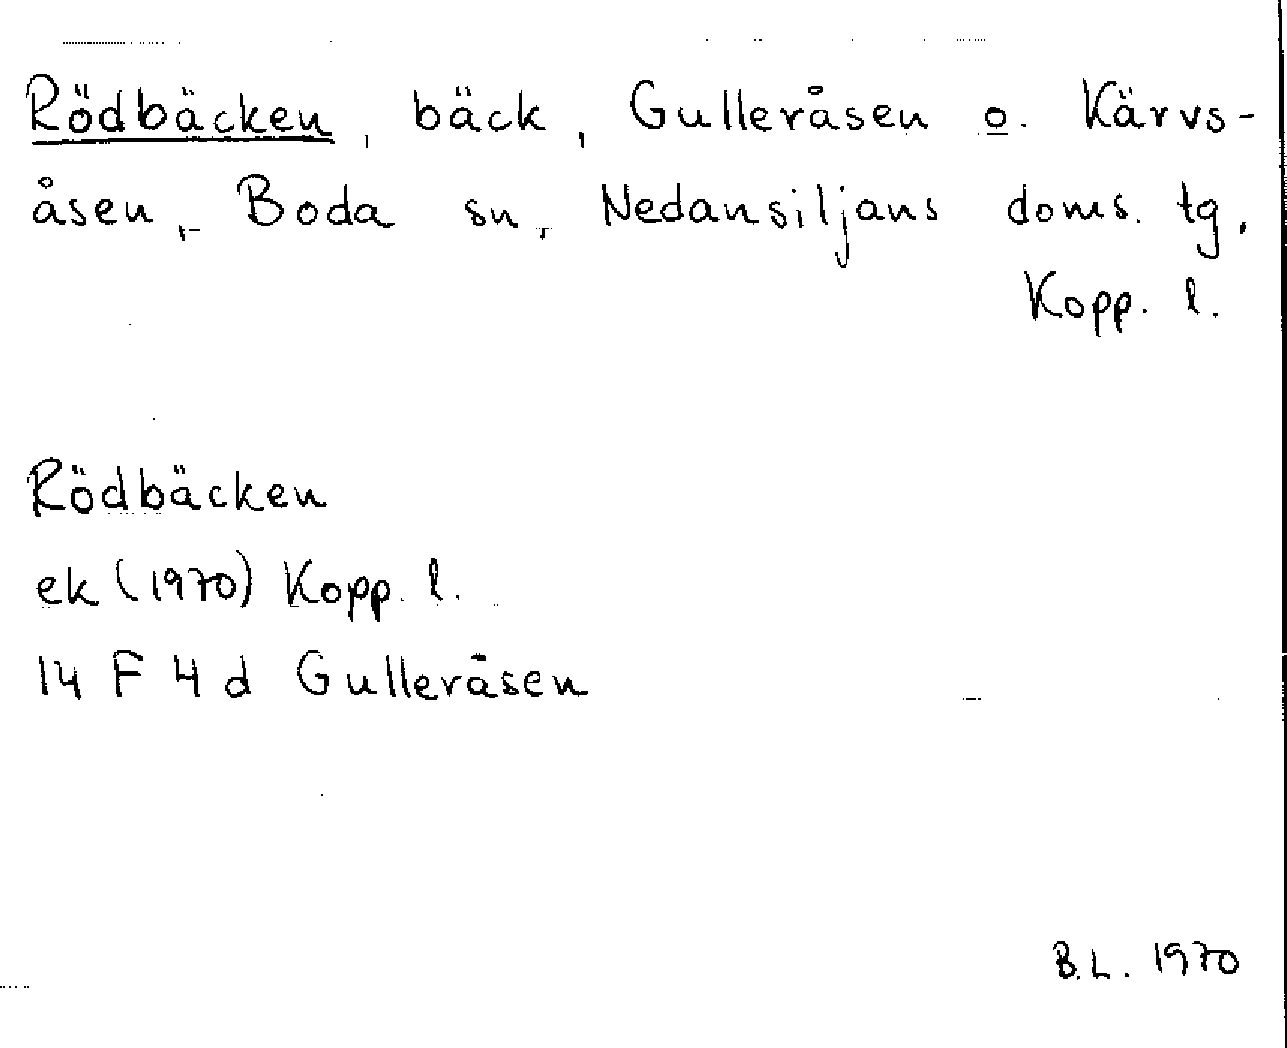 Rödbäcken, bäck, Gulleråsen o. Kärvs-
åsen, Boda sn, Nedansiljans doms. tg,
Kopp. l.
Rödbäcken
ek (1970) Kopp. l.
14 F 4 d Gulleråsen
B.L. 1970